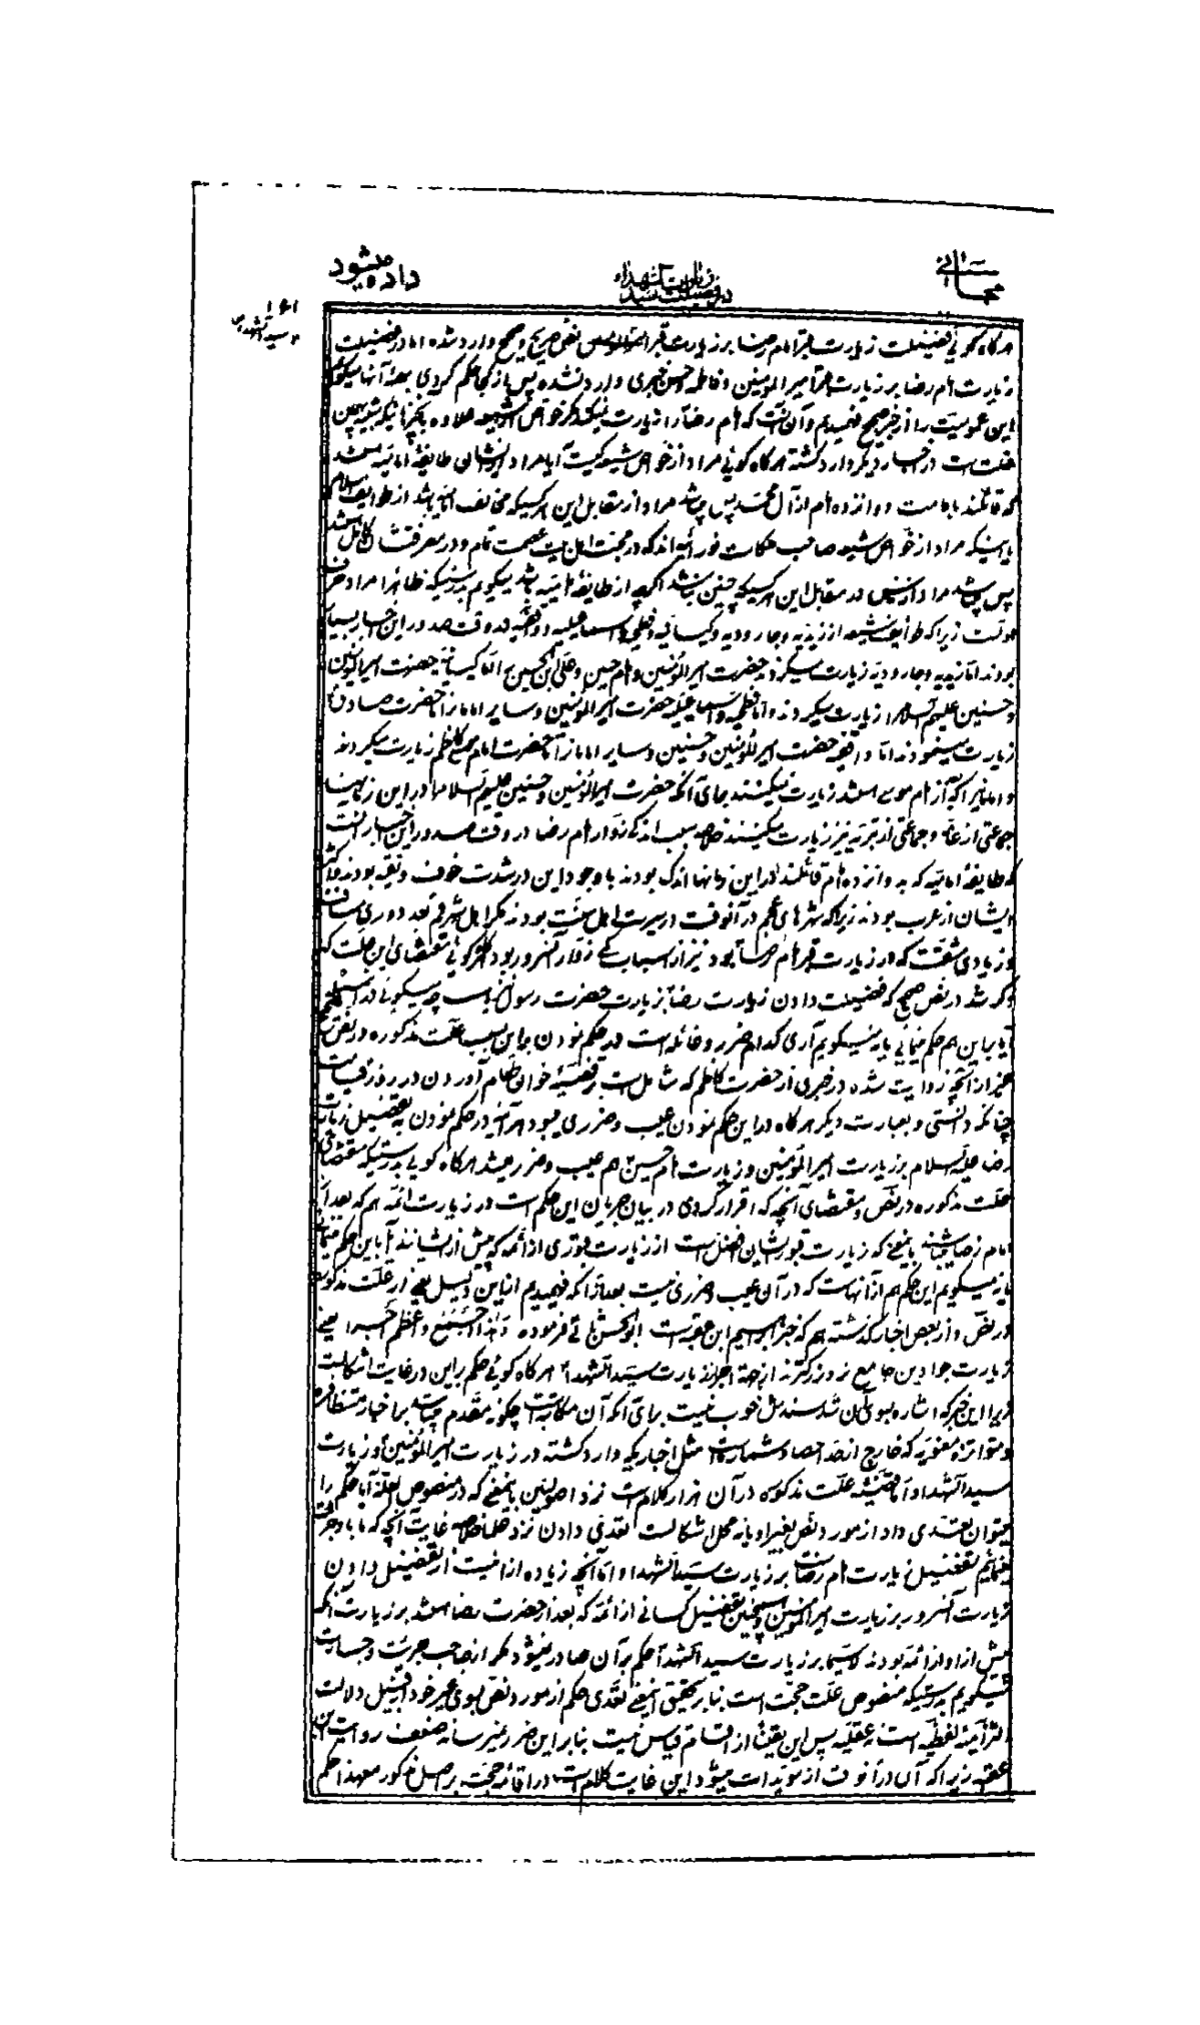 مجانی
در فضیلت زیارت سید الشهداء
داده میشود
۱۶۱
سید الشهداء
هرگاه گوئی فضیلت زیارت قبر امام رضا بر زیارت قبر نص صریح و صحیح وارد شده اما در فضیلت
زیارت امام رضا بر زیارت قبر امیر المؤمنین و فاطمه و حسن خبری وارد نشده پس از کجا حکم کردی بهمهٔ آنها میگویم
این عمومیت را از خبر صحیح فهمیدیم و آن آنست که امام رضا را زیارت نمیکند مگر خواص از شیعه علاوه
علت است در اخبار دیگر وارد گشته هرگاه گوئی مراد از خواص شیعه کیست آیا مراد از ایشان طایفهٔ امامیه میباشند
که قائلند بامامت دوازده امام از آل محمد پس میباشد مراد از مقابل این هر کسیکه مخالف امامیه باشد از طوایف اسلام
یا اینکه مراد از خواص شیعه صاحب ملکات نورانیه اند که در محبت اهل بیت عصمت تمام و در معرفتشان کامل باشند
پس میباشد مراد در مقابل این هر کسیکه چنین نباشد اگرچه از طایفهٔ امامیه باشد میگویم بدرستیکه ظاهرا مراد
اولست زیرا که طوایف شیعه از زیدیه و جارودیه و کیسانیه و فطحیه و اسماعیلیه و واقفیه در وقت صدور این اخبار بسیار
بودند اما زیدیه و جارودیه زیارت میکردند حضرت امیر المؤمنین و امام حسین و علی ابن الحسین اما کیسانیه حضرت امیر المؤمنین
و حسنین علیهم السلام را زیارت میکردند و اما فطحیه و اسماعیلیه حضرت امیر المؤمنین و سایر امامان را تا حضرت صادق
زیارت مینمودند اما واقفیه حضرت امیر المؤمنین و حسنین و سایر امامان را تا حضرت امام موسی کاظم زیارت میکردند
زیارت میکنند بجای آنکه حضرت امیر المؤمنین و حسنین علیهم السلام را در این زمانها
جماعتی از عامه و جماعتی از نیز زیارت میکنند خلاصه سبب اندکی زوار امام رضا در وقت صدور این اخبار آنست
که طایفهٔ امامیه که به دوازده امام قائلند در این زمانها اندک بودند با وجود این در شدت خوف و تقیه بودند و اکثر
ایشان از عرب بودند زیرا که شهرهای عجم در آنوقت در سیرت اهل سنت بودند مگر اهل شهر قم بعد دوری مسافت
و زیادی مشقت که در زیارت قبر امام رضا بود نیز از اسباب کمی زوار آنسرور بود هرگاه گوئی مقتضای این علت که
ذکر شد در نص صحیح که فضیلت دادن زیارت رضا بزیارت حضرت رسول چه میگوئی در
آیا براین هم حکم مینمائی یا نه میگویم آری کدام ضرر و غائله است در حکم نمودن براین بسبب علت مذکوره در نص
غیر از آنچه روایت شده در خبری از حضرت کاظم که شامل است بر قضیهٔ خوان طعام آوردن در روز قیامت
چنانکه دانستی و بعبارت دیگر هرگاه در این حکم نمودن عیب و ضرری میبود هرآینه در حکم نمودن به تفضیل زیارت
رضا علیه السلام بر زیارت امیر المؤمنین و زیارت امام حسین هم عیب و ضرر میشد هرگاه گوئی بدرستیکه مقتضای
علت مذکوره در نص و مقتضای آنچه که اقرار کردی در بیان جریان این حکم است در زیارت ائمه هم که بعد از
امام رضا میباشند باینمعنی که زیارت قبور ایشان افضل است از زیارت قبوری از ائمه که پیش از ایشانند آیا باین حکم مینمائی
یا نه میگویم این حکم هم از آنهاست که در آن عیب و ضرری نیست بعد از آنکه فهمیدیم از این دلیل یعنی از علت مذکوره
در نص و از بعض اخبار گذشته هم که خبر ابراهیم ابن عقبه است ابو الحسن ثالث فرموده و هذا اجمع و اعظم اجرا یعنی
زیارت جوادین جامع تر و بزرگتر اند از جهة اجر از زیارت سید الشهداء هرگاه گوئی حکم براین در غایت اشکالست
زیرا این خبر که اشاره بسوی آن شد سندش خوب نیست برای آنکه آن مکاتبه است چگونه مقدم میباشد بر اخبار متظافره
و متواتره معنویه که خارج از حد احصاء و شماره است مثل اخباریکه وارد گشته در زیارت امیر المؤمنین و زیارت
سید الشهداء و اما قضیهٔ علت مذکوره در آن هزار کلام است نزد اصولیین باینمعنی که در منصوص العلة آیا حکم را
میتوان تعدی داد از مورد نص بغیر او یا نه محل اشکالست تعدی دادن نزد علماء خلاصه غایت آنچه که ما باو جرئت
مینمائیم تفضیل زیارت امام رضاست بر زیارت سید الشهداء و اما آنچه زیاده از اینست از تفضیل دادن
زیارت آنسرور بر زیارت امیر المؤمنین و همچنین تفضیل کسانی از ائمه که بعد از حضرت رضا باشند بر زیارت آنکه
پیش از او از ائمه بودند لاسیما بر زیارت سید الشهداء حکم بر آن صادر نمیشود مگر از صاحب جرئت و جسارت
میگویم بدرستیکه منصوص علت حجت است بنابر تحقیق یعنی تعدی حکم از مورد نص بسوی غیر خود از قبیل دلالت
التزامیهٔ لفظیه است نه عقلیه پس این یقینا از اقسام قیاس نیست بنابراین ضرر نمیرساند ضعف روایت ابن
عقبه زیرا که آن در آنوقت از مویدات میشود این غایت کلام است در اقامهٔ حجت بر اصل مذکور معهذا حکم